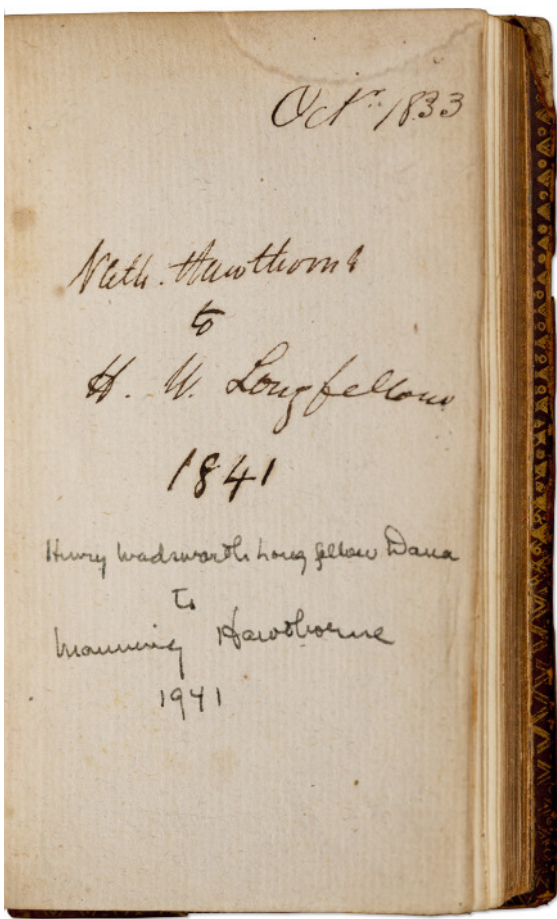 Octr. 1833
Nath. Hawthorne
to
H. W. Longfellow
1841
Henry Wadsworth Longfellow Dana
to
Manning Hawthorne
1941